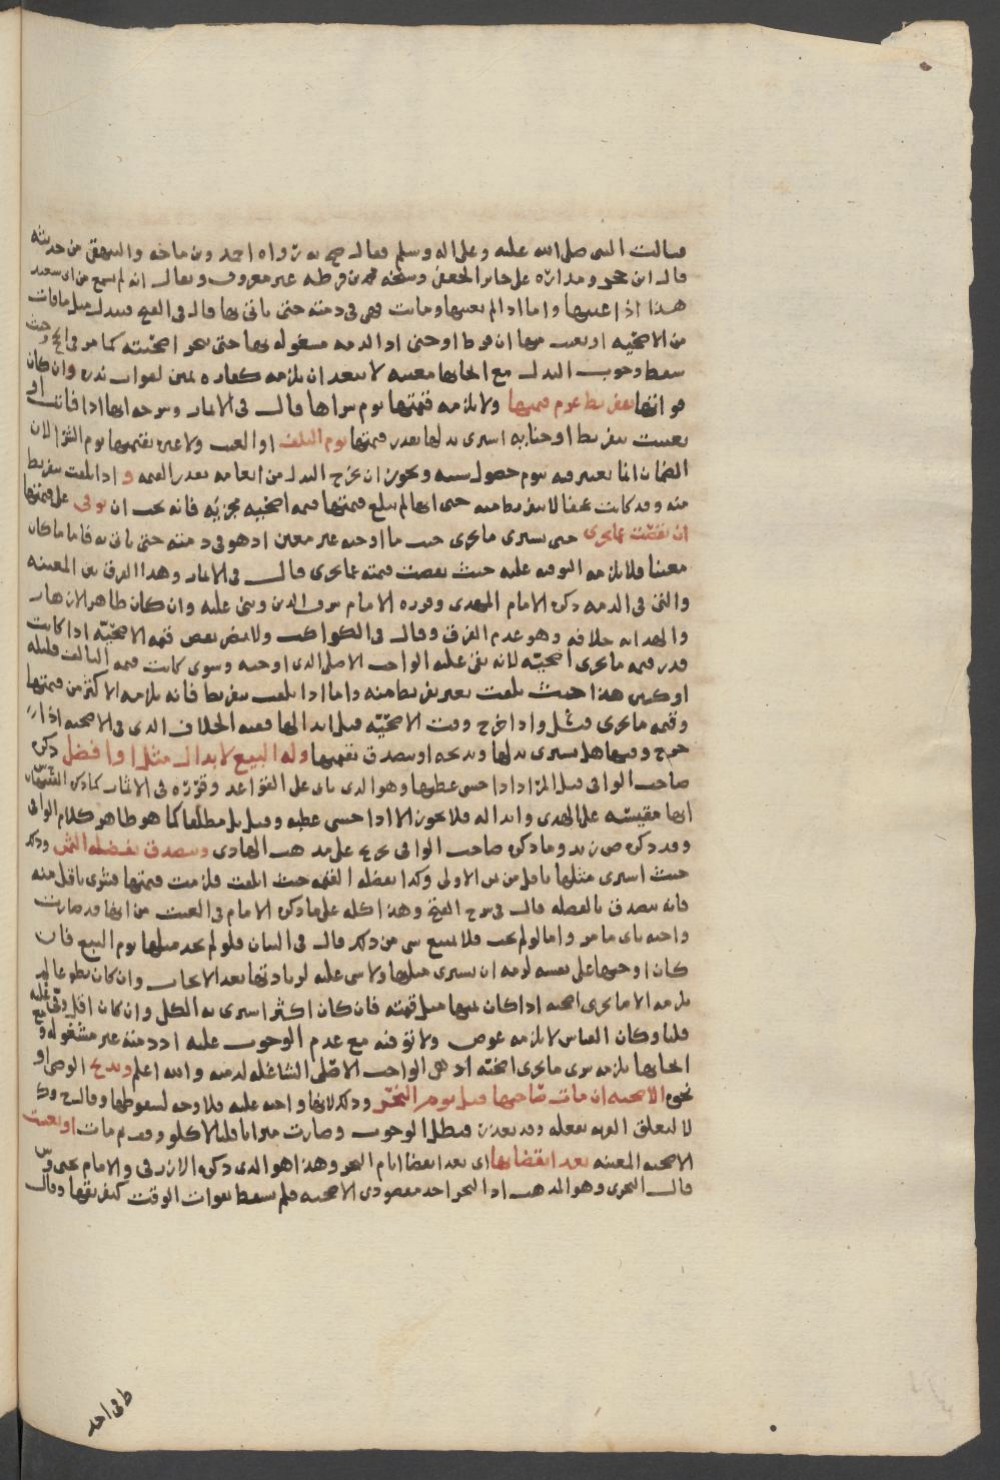 فسالت النبى صلى الله عليه وعلى اله وسلم فقال ضح به رواه احمد وبن ماجه والبيهقي من حديثه
قال ابن حجر ومداره على جابر الجعفي وشيخه محمد بن قرظه غير معروف ويقال انه لم يسمع من ابى سعيد
هذا اذا عينها واما اذا لم يعينها وماتت فهى فى ذمته حتى ياتى بها قال فى الفتح فيبدل مثل ما فات
من الاضحيه او تعيب منها ان فرط او حتى اذ الذمه مشغوله بها حتى ينحر اضحيته كما مر فى الحج وحيث
سقط وجوب البدل مع ايجابها معينه لا يبعد ان يلزمه كفاره يمين لفوات نذره وان كان
فواتها بتفريط غرم قيمتها ولا يلزمه قيمتها يوم شراها قال فى الاثمار وشرحه انها اذا فاتت او
تعيبت بتفريط او جنايه اشترى بدلها بقدر قيمتها يوم التلف او العيب ولا عبره بقيمتها يوم الشرا لان
الضمان انما يعتبر فيه يوم حصول سببه ويجوز ان يخرج البدل من انعامه بقدر القيمه و اذا تلفت بتفريط
منه وقد كانت عجفا لا بتفريط منه حتى انها لم تبلغ قيمتها قيمه اضحيه مجزيه فانه يجب ان يوفى على قيمتها
ان نقصت عما يجزى حتى يشترى ما يجزى حيث ما اوجبه غير معين اذ هو فى ذمته حتى ياتى به فاما ما كان
معينا فلا يلزمه التوفيه عليه حيث نقصت قيمته عما يجزى قال فى الاثمار وهذا الفرق بين المعينه
والتى فى الذمه ذكره الامام المهدى وقرره الامام شرف الدين وبنى عليه وان كان ظاهر الازهار
والهدايه خلافه وهو عدم الفرق وقال فى الكواكب ولا يضر نقص قيمه الاضحيه اذا كانت
قدر قيمه ما يجزى اضحيه لانه بقى عليه الواجب الاصلى الذى اوجبه وسوى كانت قيمه التالفه قليله
او كثيره هذا حيث تلفت بغير تفريط منه واما اذا تلفت بتفريط فانه يلزمه الاكثر من قيمتها
وقيمه ما يجزى قيل واذا خرج وقت الاضحيه قبل ابدالها ففيه الخلاف الذى فى الاضحيه اذا
خرج وقتها هل يشترى بدلها ويذبحه او يتصدق بقيمتها وله البيع لابدال مثل او افضل ذكره
صاحب الوافى قيل المراد اذا خشى عطبها وهو الذى ياتى على القواعد وقرره فى الاثمار كما ذكره
انها مقيسه على الهدى وابداله فلا يجوز الا اذا خشى عطبه وقيل بل مطلقا كما هو ظاهر كلام الوافى
وقد ذكره ص زيد وما ذكره صاحب الوافى تخريج على مذهب الهادى ويتصدق بفضله الثمن وذلك
حيث اشترى مثلها باقل من ثمن الاولى وكذا بفضله القيمه حيث اتلفت فلزمت قيمتها فشرى باقل منه
فانه يتصدق بالفضله قال فى شرح الفتح وهذا كله على ما ذكره الامام فى الغيث من انها قد صارت
واجبه باى ما مر واما لو لم تجب فلا يمنع شى من ذلك قال فى البيان فلو لم يجد مثلها يوم البيع فان
كان اوجبها على نفسه لزمه ان يشترى مثلها ولا شى عليه لزيادتها بعد الايجاب وان كان تطوعا لم
يلزمه الا ما يجزى اضحيه اذا كان ثمنها مثل قيمته فان كان اكثر اشترى به الكل وان كان اقل
قلنا وكان القياس لا يلزمه عوض ولا توفيه مع عدم الوجوب عليه اذ ذمته غير مشغوله و مع
ايجابها يلزمه شرى ما يجزى اضحيه اذ هى الواجب الاصلى الشاغله لذمته والله اعلم ويذبح الوصى او
نحوه الاضحيه ان مات صاحبها قبل يوم النحر وذلك لانها واجبه عليه فلا وجه لسقوطها وقال
لا لتعلق القربه بفعله وقد تعذرت فبطل الوجوب وصارت ميراثا قلنا لا كلو وقف ثم مات او تعيبت
الاضحيه المعينه بعد انقضايها اى بعد انقضا ايام النحر وهذا هو الذى ذكره الازرقى والامام يحيى
قال النجرى وهو المذهب اذ النحر احد مقصودى الاضحيه فلم يسقط بفوات الوقت كتفريقها وقال
ط فى احد